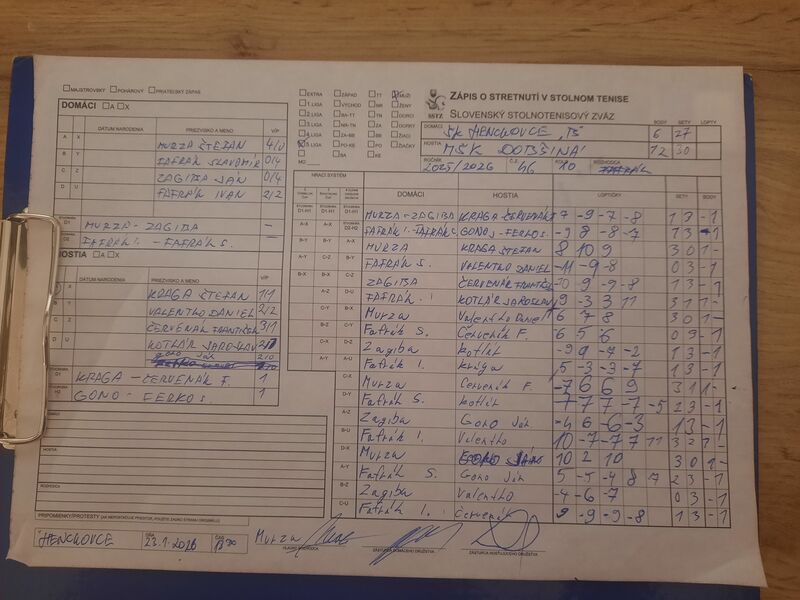 MAJSTROVSKÝ POHÁROVÝ PRIATEĽSKÝ ZÁPAS
DOMÁCI A X
DÁTUM NARODENIA PRIEZVISKO A MENO V/P
A X MURZA ŠTEFAN 4/0
B Y FAFRÁK SLAVOMÍR 0/4
C Z ZAGIBA JÁN 0/4
D U FAFRÁK IVAN 2/2
D1 MURZA - ZAGIBA -
FAFRÁK I. - FAFRÁK S. -
HOSTIA A X
DÁTUM NARODENIA PRIEZVISKO A MENO V/P
X KRAGA ŠTEFAN 1/1
B Y VALENTKO DANIEL 2/2
C Z ČERVENÁK FRANTIŠEK 3/1
D U KOTLÁR JAROSLAV
GONO JÁN 2/0
KRAGA - ČERVENÁK F. 1
H2 GONO - FERKO S. 1
DOMÁCI
HOSTIA
ROZHODCA
PRIPOMIENKY/PROTESTY
HENCKOVCE DŇA 23.1.2026 ČAS
EXTRA ZÁPAD TT MUŽI
1. LIGA VÝCHOD NR ŽENY
2. LIGA BA-TT TN DORCI
3. LIGA NR-TN ZA DORKY
4. LIGA ZA-BB BB ŽIACI
5. LIGA PO-KE PO ŽIAČKY
MO BA KE
SSTZ
ZÁPIS O STRETNUTÍ V STOLNOM TENISE
SLOVENSKÝ STOLNOTENISOVÝ ZVÄZ
BODY SETY LOPTY
DOMÁCI ŠK HENCKOVCE „B" 6 27
HOSTIA MŠK DOBŠINÁ 12 30
ROČNÍK 2025/2026 Č.Z. 46 KOLO 10 ROZHODCA
HRACÍ SYSTÉM DOMÁCI HOSTIA LOPTIČKY SETY BODY
D1-H1 D1-H1 D1-H1 MURZA-ZAGIBA KRAGA ČERVENÁK 7 -9 -7 -8 1 3 -1
A-X A-X D2-H2 FAFRÁK I.-FAFRÁK S. GONO J-FERKO S. -9 8 -8 -7 1 3 -1
B-Y B-Y A-X MURZA KRAGA ŠTEFAN 8 10 9 3 0 1 -
A-Y C-Z B-Y FAFRÁK S. VALENTKO DANIEL -11 -9 -8 0 3 -1
B-X B-X C-Z ZAGIBA ČERVENÁK FRANTIŠEK -10 9 -9 -8 1 3 -1
A-Z D-U FAFRÁK I. KOTLÁR JAROSLAV 9 -3 3 11 3 1 1 -
C-Y A-Y Murza Valentko Daniel 6 7 8 3 0 1 -
B-Y B-Z Fafrák S. Červenák F. 6 5 6 0 3 -1
Zagiba kotlár -9 9 -7 -2 1 3 -1
A-Y A-U Fafrák I. Krága 5 -3 -3 -7 1 3 -1
C-X Murza Červenák F. -7 6 6 9 3 1 1 -
D-Y Fafrák S. kotlár 7 7 7 -7 -5 2 3 -1
A-Z Zagiba Gono Ján -4 6 -6 -3 1 3 -1
B-U Fafrák I. Valentko 10 -7 -7 7 11 3 2 1 -
D-X Murza 10 2 10 3 0 1 -
A-Y Fafrák S. Gono Ján 5 -5 -4 8 -7 2 3 -1
B-Z Zagiba Valentko -4 -6 -7 0 3 -1
C-U Fafrák I. Červenák 9 -9 -9 -8 1 3 -1
Murza
HLAVNÝ ROZHODCA ZÁSTUPCA DOMÁCEHO DRUŽSTVA ZÁSTUPCA HOSŤUJÚCEHO DRUŽSTVA